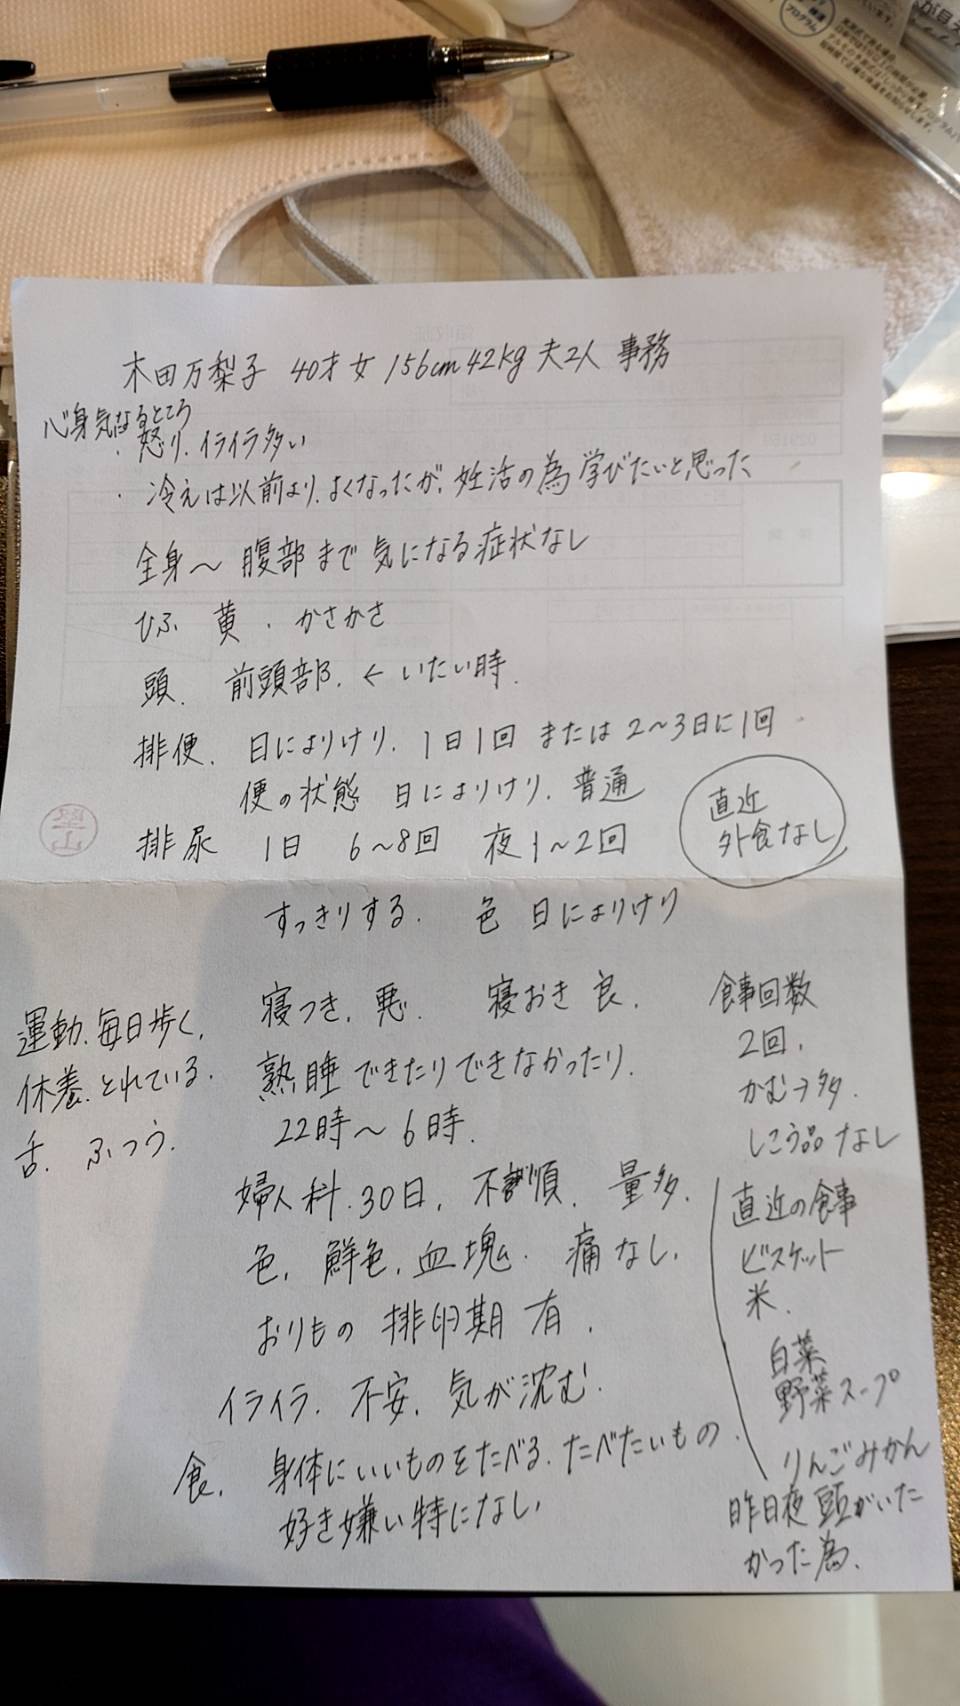 木田万梨子 40才 女 156cm 42kg 夫2人 事務
心身気になるところ
・怒り、イライラ多い
・冷えは以前より、よくなったが、妊活の為学びたいと思った
全身〜腹部まで気になる症状なし
ひふ 黄・かさかさ
頭、前頭部、←いたい時、
排便、日によりけり、1日1回 または2〜3日に1回
便の状態 日によりけり、普通
直近
外食なし
排尿 1日 6〜8回 夜1〜2回
すっきりする、 色 日によりけり
寝つき、悪、 寝おき 良、
熟睡できたりできなかったり、
22時〜6時、
運動、毎日歩く、
休養、とれている、
舌、ふつう、
食事回数
2回、
かむ→多、
しこう品なし
婦人科、30日、不順、量多、
色、鮮色、血塊、痛なし、
おりもの 排卵期 有、
イライラ、不安、気が沈む、
食、身体にいいものをたべる、たべたいもの、
好き嫌い特になし、
直近の食事
ビスケット
米、
白菜
野菜スープ
りんごみかん
昨日夜頭がいた
かった為、